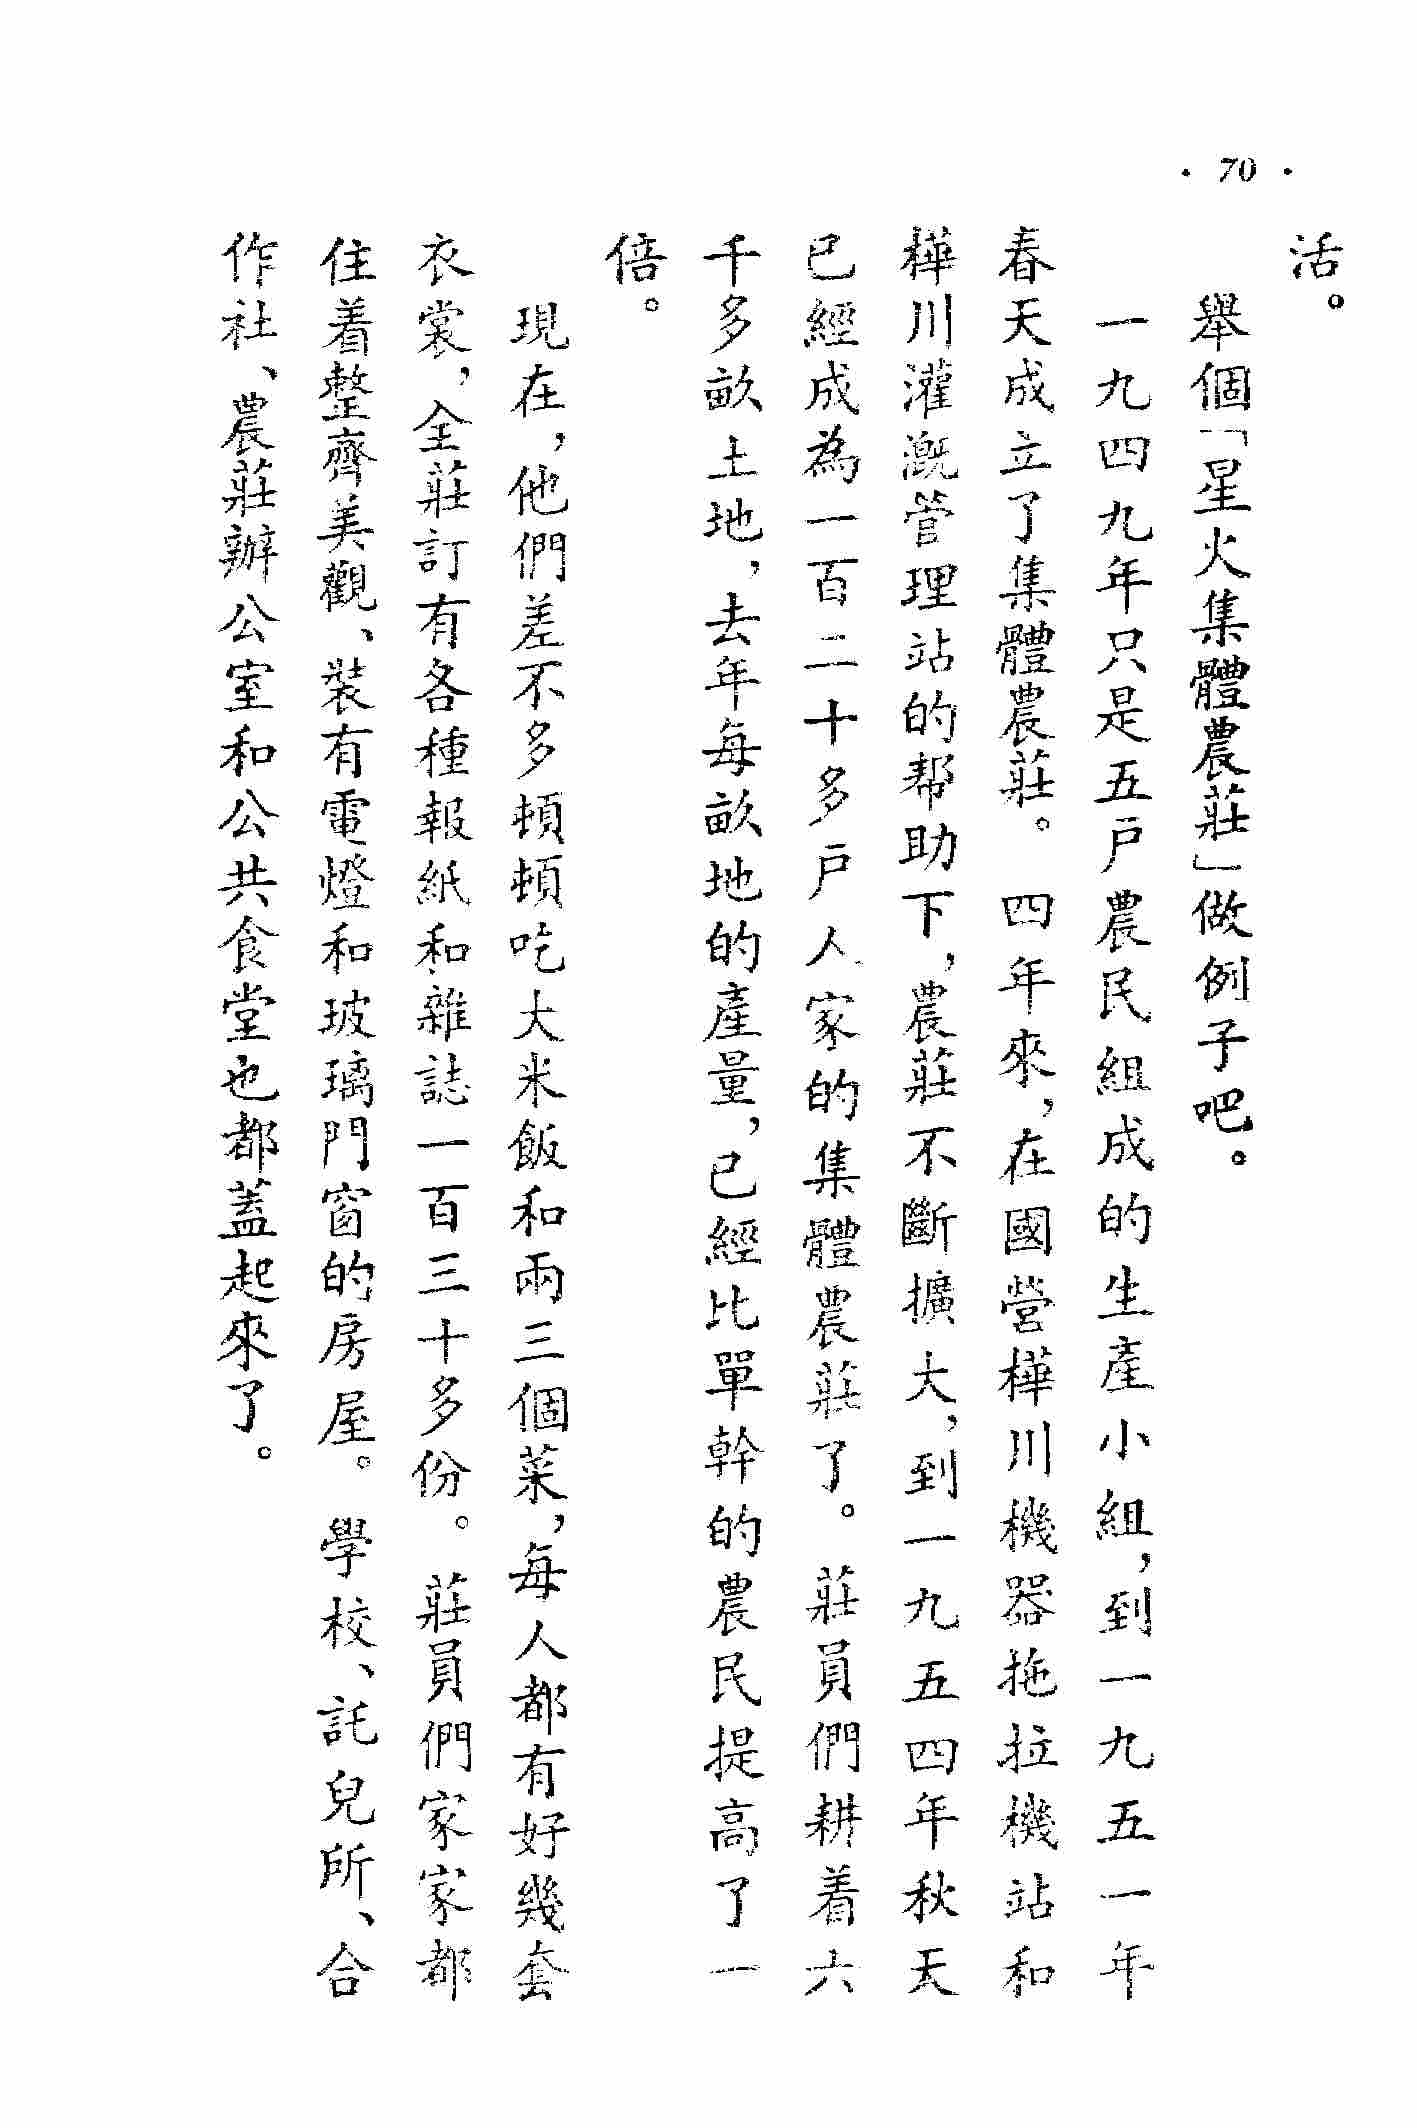 · 70 ·
活。
舉個「星火集體農莊」做例子吧。
一九四九年只是五戶農民組成的生產小組，到一九五一年
春天成立了集體農莊。四年來，在國營樺川機器拖拉機站和
樺川灌溉管理站的帮助下，農莊不斷擴大，到一九五四年秋天
已經成為一百二十多戶人家的集體農莊了。莊員們耕着六
千多畝土地，去年每畝地的產量，已經比單幹的農民提高了一
倍。
現在，他們差不多頓頓吃大米飯和兩三個菜，每人都有好幾套
衣裳，全莊訂有各種報紙和雜誌一百三十多份。莊員們家家都
住着整齊美觀、裝有電燈和玻璃門窗的房屋。學校、託兒所、合
作社、農莊辦公室和公共食堂也都蓋起來了。